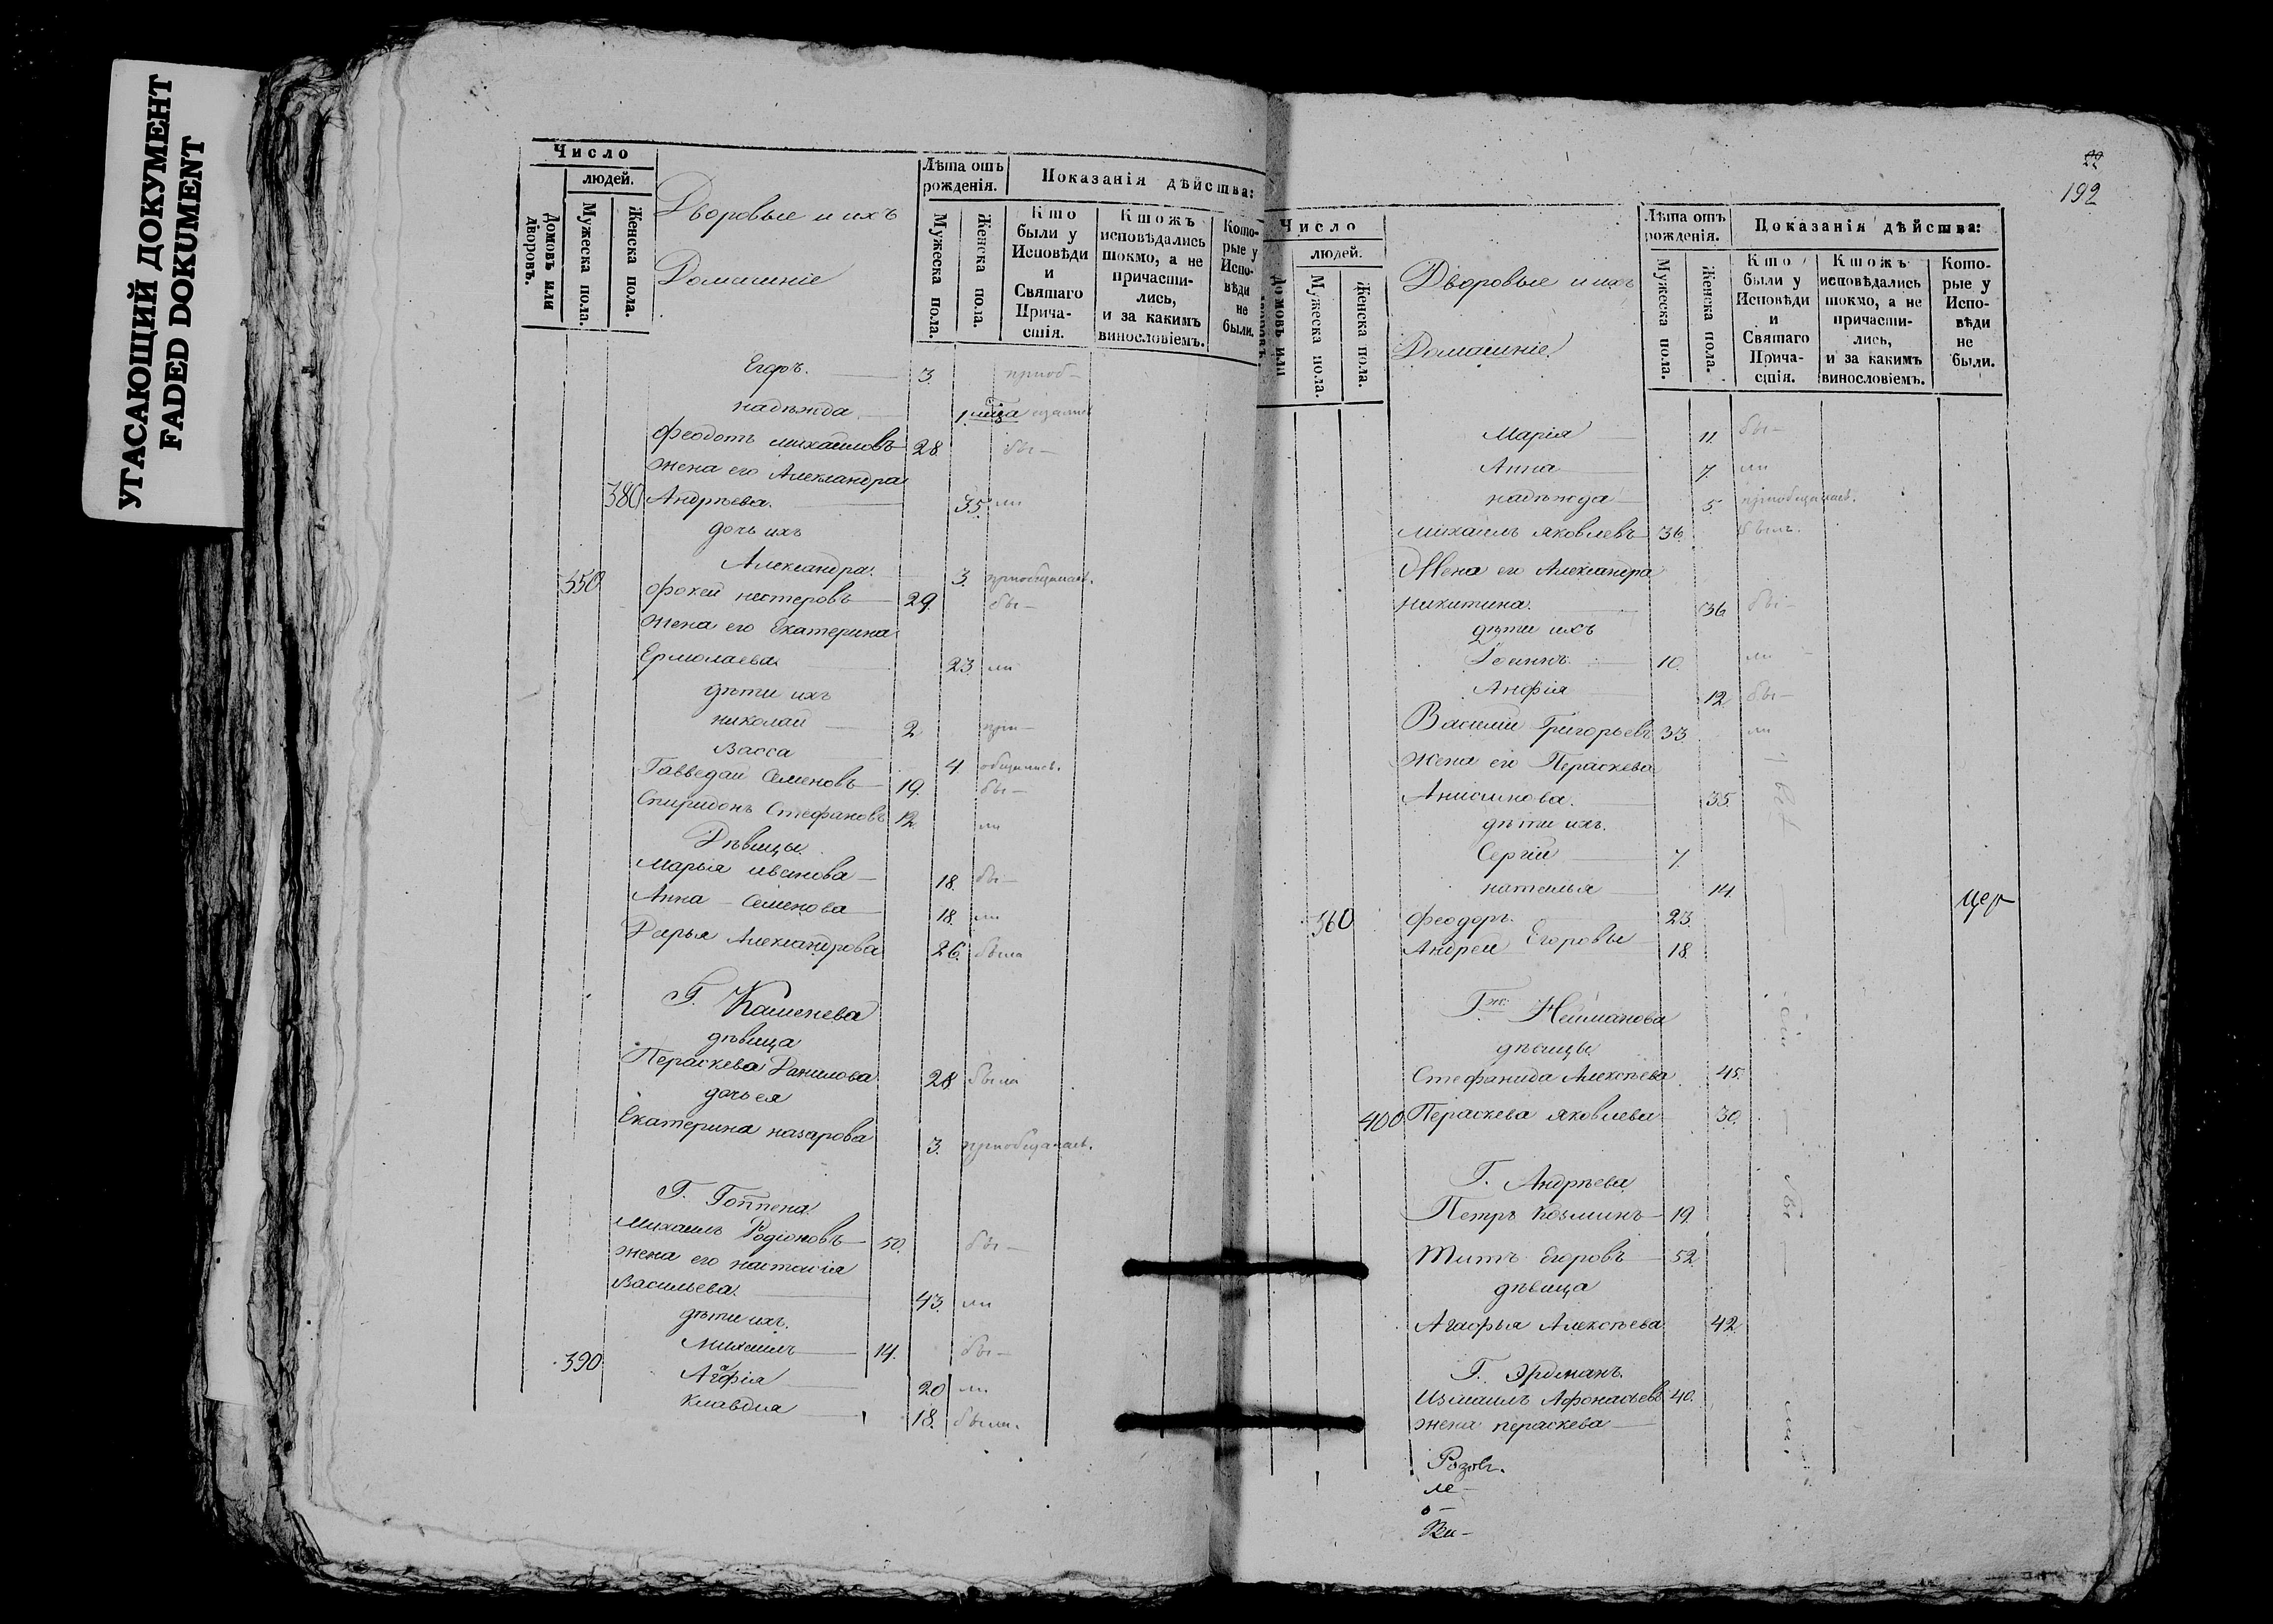 УГАСАЮЩИЙ ДОКУМЕНТ
FADED DOKUMENT
Число
людей.
Домовъ или дворовъ.
Мужеска пола.
Женска пола.
Дворовые и ихъ
Домашніе
Лѣта отъ рожденія.
Мужеска пола.
Женска пола.
Показанія дѣйства:
Кто были у Исповѣди и Святаго Причастія.
Ктожъ исповѣдались токмо, а не причастились, и за какимъ винословіемъ.
Которые у Исповѣди не были.
Егоръ. 3. приоб-
надѣжда 1. щались
Феодотъ михаиловъ 28. бы-
жена его Александра
380 Андрѣева. 35. ли
дочь ихъ
Александра. 3. приобщалась.
350 Фокеи нестеровъ 29. бы-
жена его Екатерина
Ермолаева 23. ли
дѣти ихъ
николаи 2 при-
Васса 4. общились.
Гавведаи Семеновъ 19. бы-
Спиридонъ Стефановъ 12. ли
Дѣвицы.
Марья иванова 18. бы-
Анна Семенова 18. ли
Дарья Александрова 26. была
Г. Каменева
дѣвица
Пераскева Данилова 28 была
дочь ея
Екатерина назарова 3. приобщалась.
Г. Гоппена
Михаилъ Родіоновъ 50. бы-
жена его настасія
Васильева. 43. ли
дѣти ихъ.
Михаилъ 14. бы-
390 Агафія 20 ли
Клавдия 18. были.
22
192
Число
людей.
Домовъ или
Мужеска пола.
Женска пола.
Дворовые и ихъ
Домашніе
Лѣта отъ рожденія.
Мужеска пола.
Женска пола.
Показанія дѣйства:
Кто были у Исповѣди и Святаго Причастія.
Ктожъ исповѣдались токмо, а не причастились, и за какимъ винословіемъ.
Которые у Исповѣди не были.
Марія 11. бы-
Анна 7. ли
надѣжда 5. приобщалась.
михаилъ яковлевъ 36. былъ.
Жена его Александра
никитина. 36 бы-
дѣти ихъ
Іоаннъ 10. ли
Анфія 12 бы-
Василіи Григорьевъ 33. ли
жена его Пераскева
Анисимова. 35.
дѣти ихъ.
Сергіи 7.
наталья 14.
цер
360 Феодоръ 23.
Андреи Егоровы 18.
Гжъ Неиманова
дѣвицы
Стефанида Алексѣева 45.
400 Пераскева яковлева 30.
Г. Андрѣева
Петръ Козминъ 19.
Титъ Егоровъ 52.
дѣвица
Агафья Алексѣева 42
Г. Эрдманъ.
Измаилъ Афонасьевъ 40.
жена пераскева